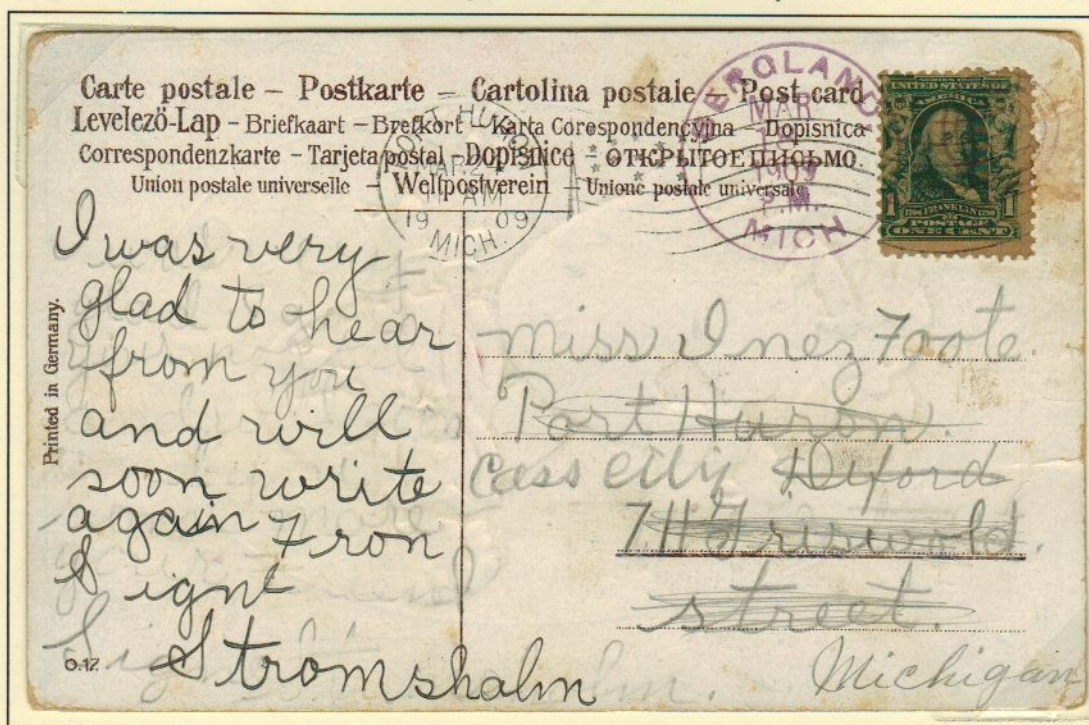 Carte postale – Postkarte – Cartolina postale – Post card
Levelezö-Lap – Briefkaart – Brefkort – Karta Corespondencyjna – Dopisnica
Correspondenzkarte – Tarjeta postal – Dopisnice – ОТКРЫТОЕ ПИСЬМО.
Union postale universelle – Weltpostverein – Unione postale universale.
PORT HURON
AM
19 09
MICH.
BERGLAND
MAR
1909
P.M.
MICH
UNITED STATES OF
AMERICA
1 FRANKLIN 1
POSTAGE
ONE CENT
I was very
glad to hear
from you
and will
soon write
again Fron
Signe
Stromshalm
Printed in Germany.
0.17
Miss Inez Foote.
Port Huron.
Cass City Deford
711 Griswold.
street.
Michigan